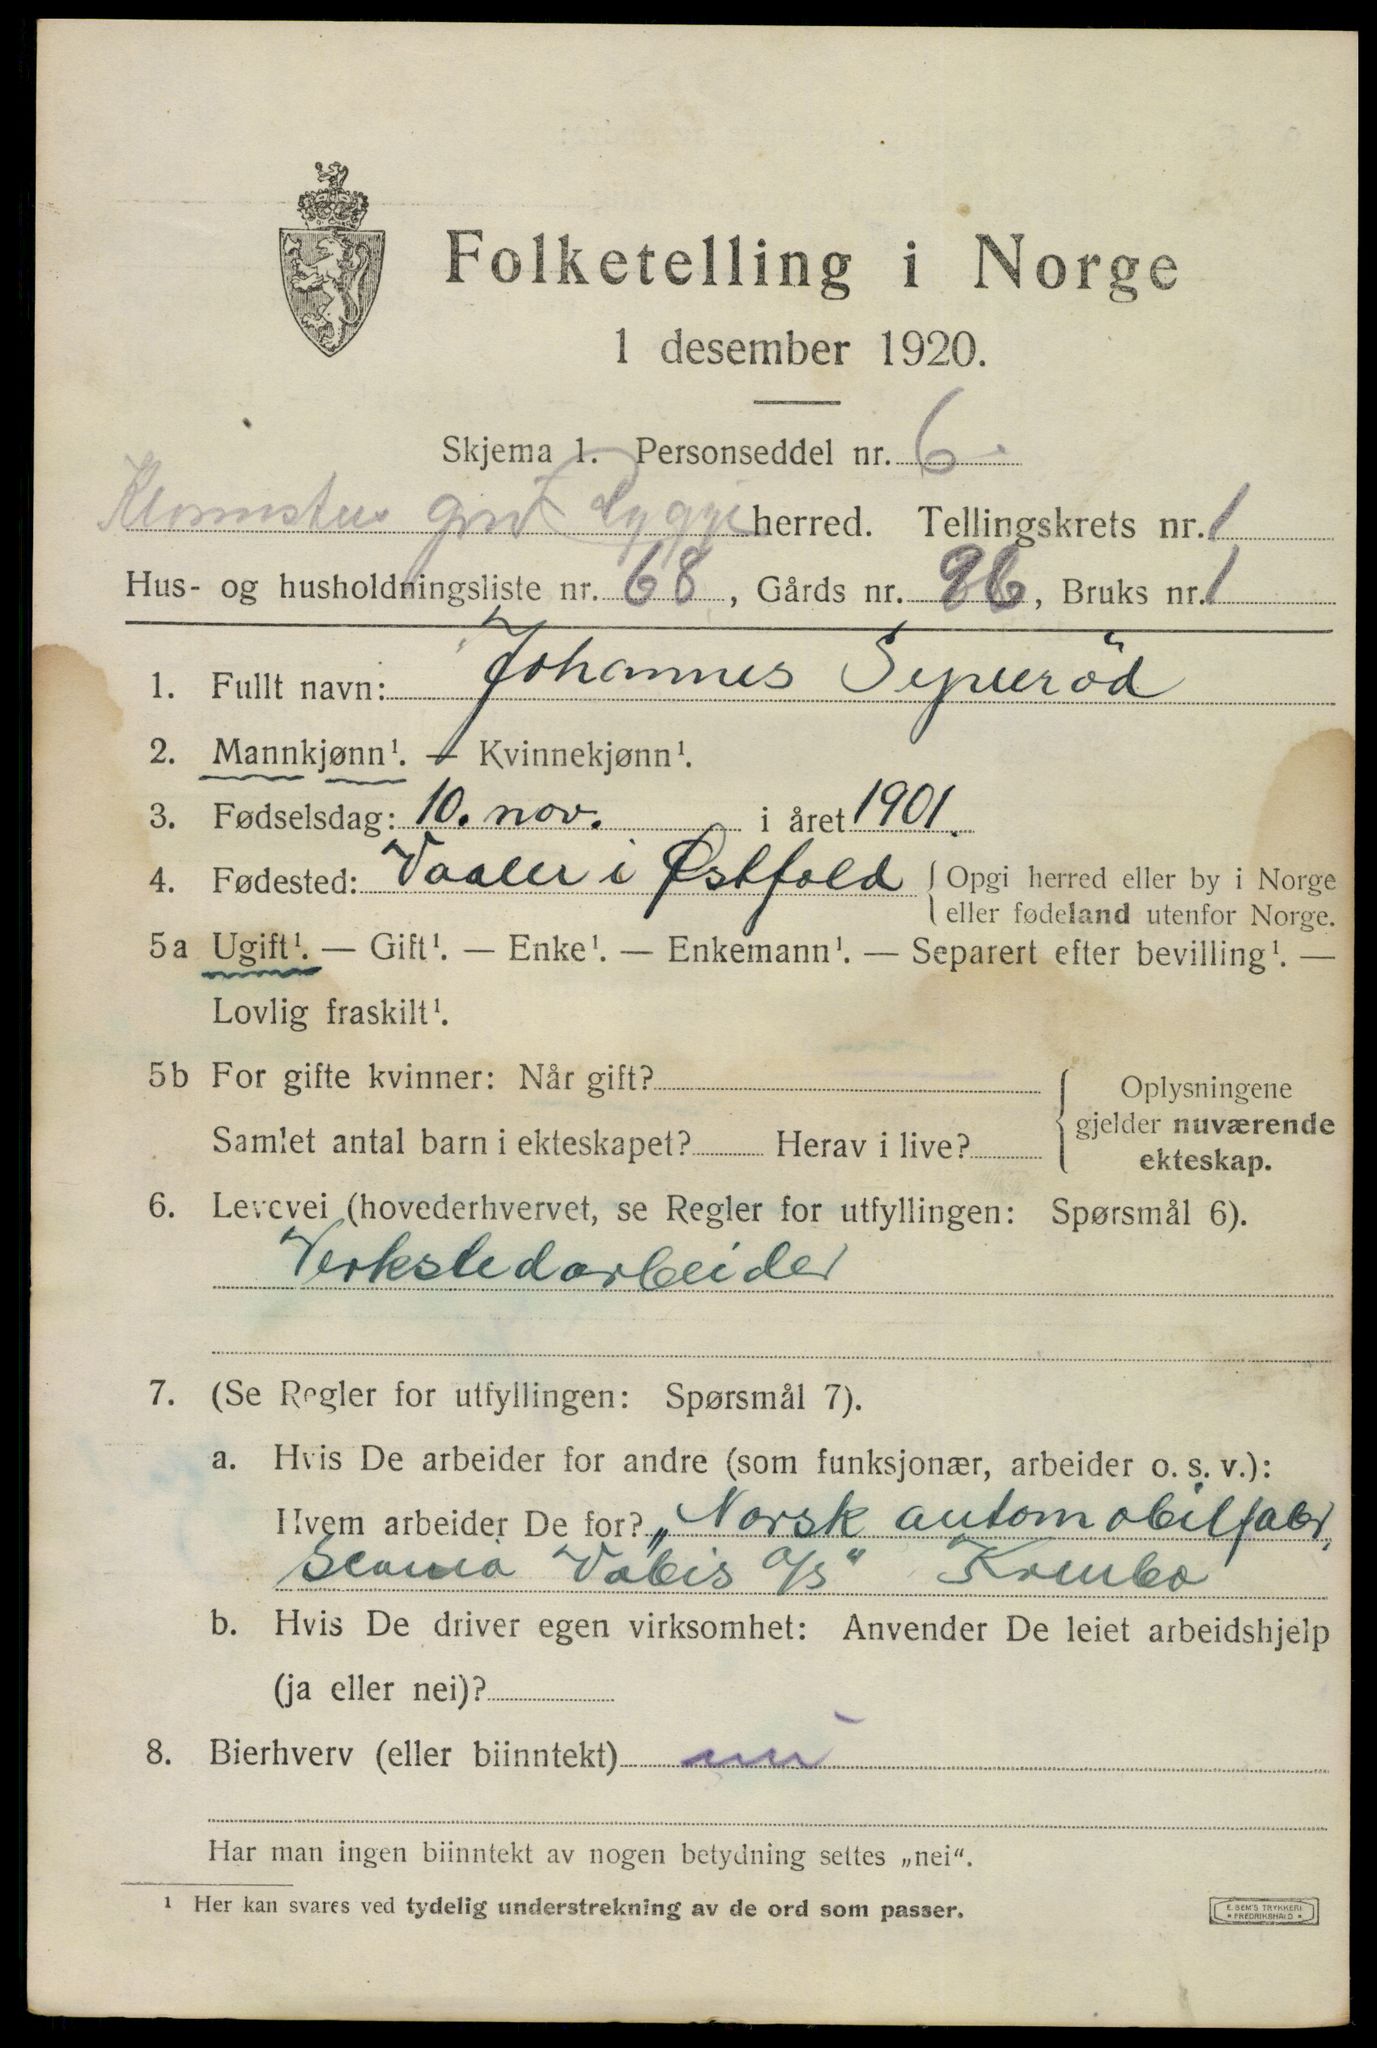 Folketelling i Norge
1 desember 1920.
Skjema 1. Personseddel nr. 6
Rygge herred. Tellingskrets nr. 1
Hus- og husholdningsliste nr. 68, Gårds nr. 96, Bruks nr. 1
1. Fullt navn: Johannes
2. Mannkjønn¹. — Kvinnekjønn¹.
3. Fødselsdag: 10. nov. i året 1901.
4. Fødested: Vaaler i Østfold { Opgi herred eller by i Norge
eller fødeland utenfor Norge.
5a Ugift¹. — Gift¹. — Enke¹. — Enkemann¹. — Separert efter bevilling¹. —
Lovlig fraskilt¹.
5b For gifte kvinner: Når gift?
Samlet antal barn i ekteskapet? Herav i live?
{ Oplysningene
gjelder nuværende
ekteskap.
6. Levevei (hovederhvervet, se Regler for utfyllingen: Spørsmål 6).
Verkstedarbeider
7. (Se Regler for utfyllingen: Spørsmål 7).
a. Hvis De arbeider for andre (som funksjonær, arbeider o. s. v.):
Hvem arbeider De for? „Norsk automobilfabr,
Scania Vabis a/s“ Krembo
b. Hvis De driver egen virksomhet: Anvender De leiet arbeidshjelp
(ja eller nei)?
8. Bierhverv (eller biinntekt) nei
Har man ingen biinntekt av nogen betydning settes „nei“.
¹ Her kan svares ved tydelig understrekning av de ord som passer.
E. SEM'S TRYKKERI
• FREDRIKSHALD •